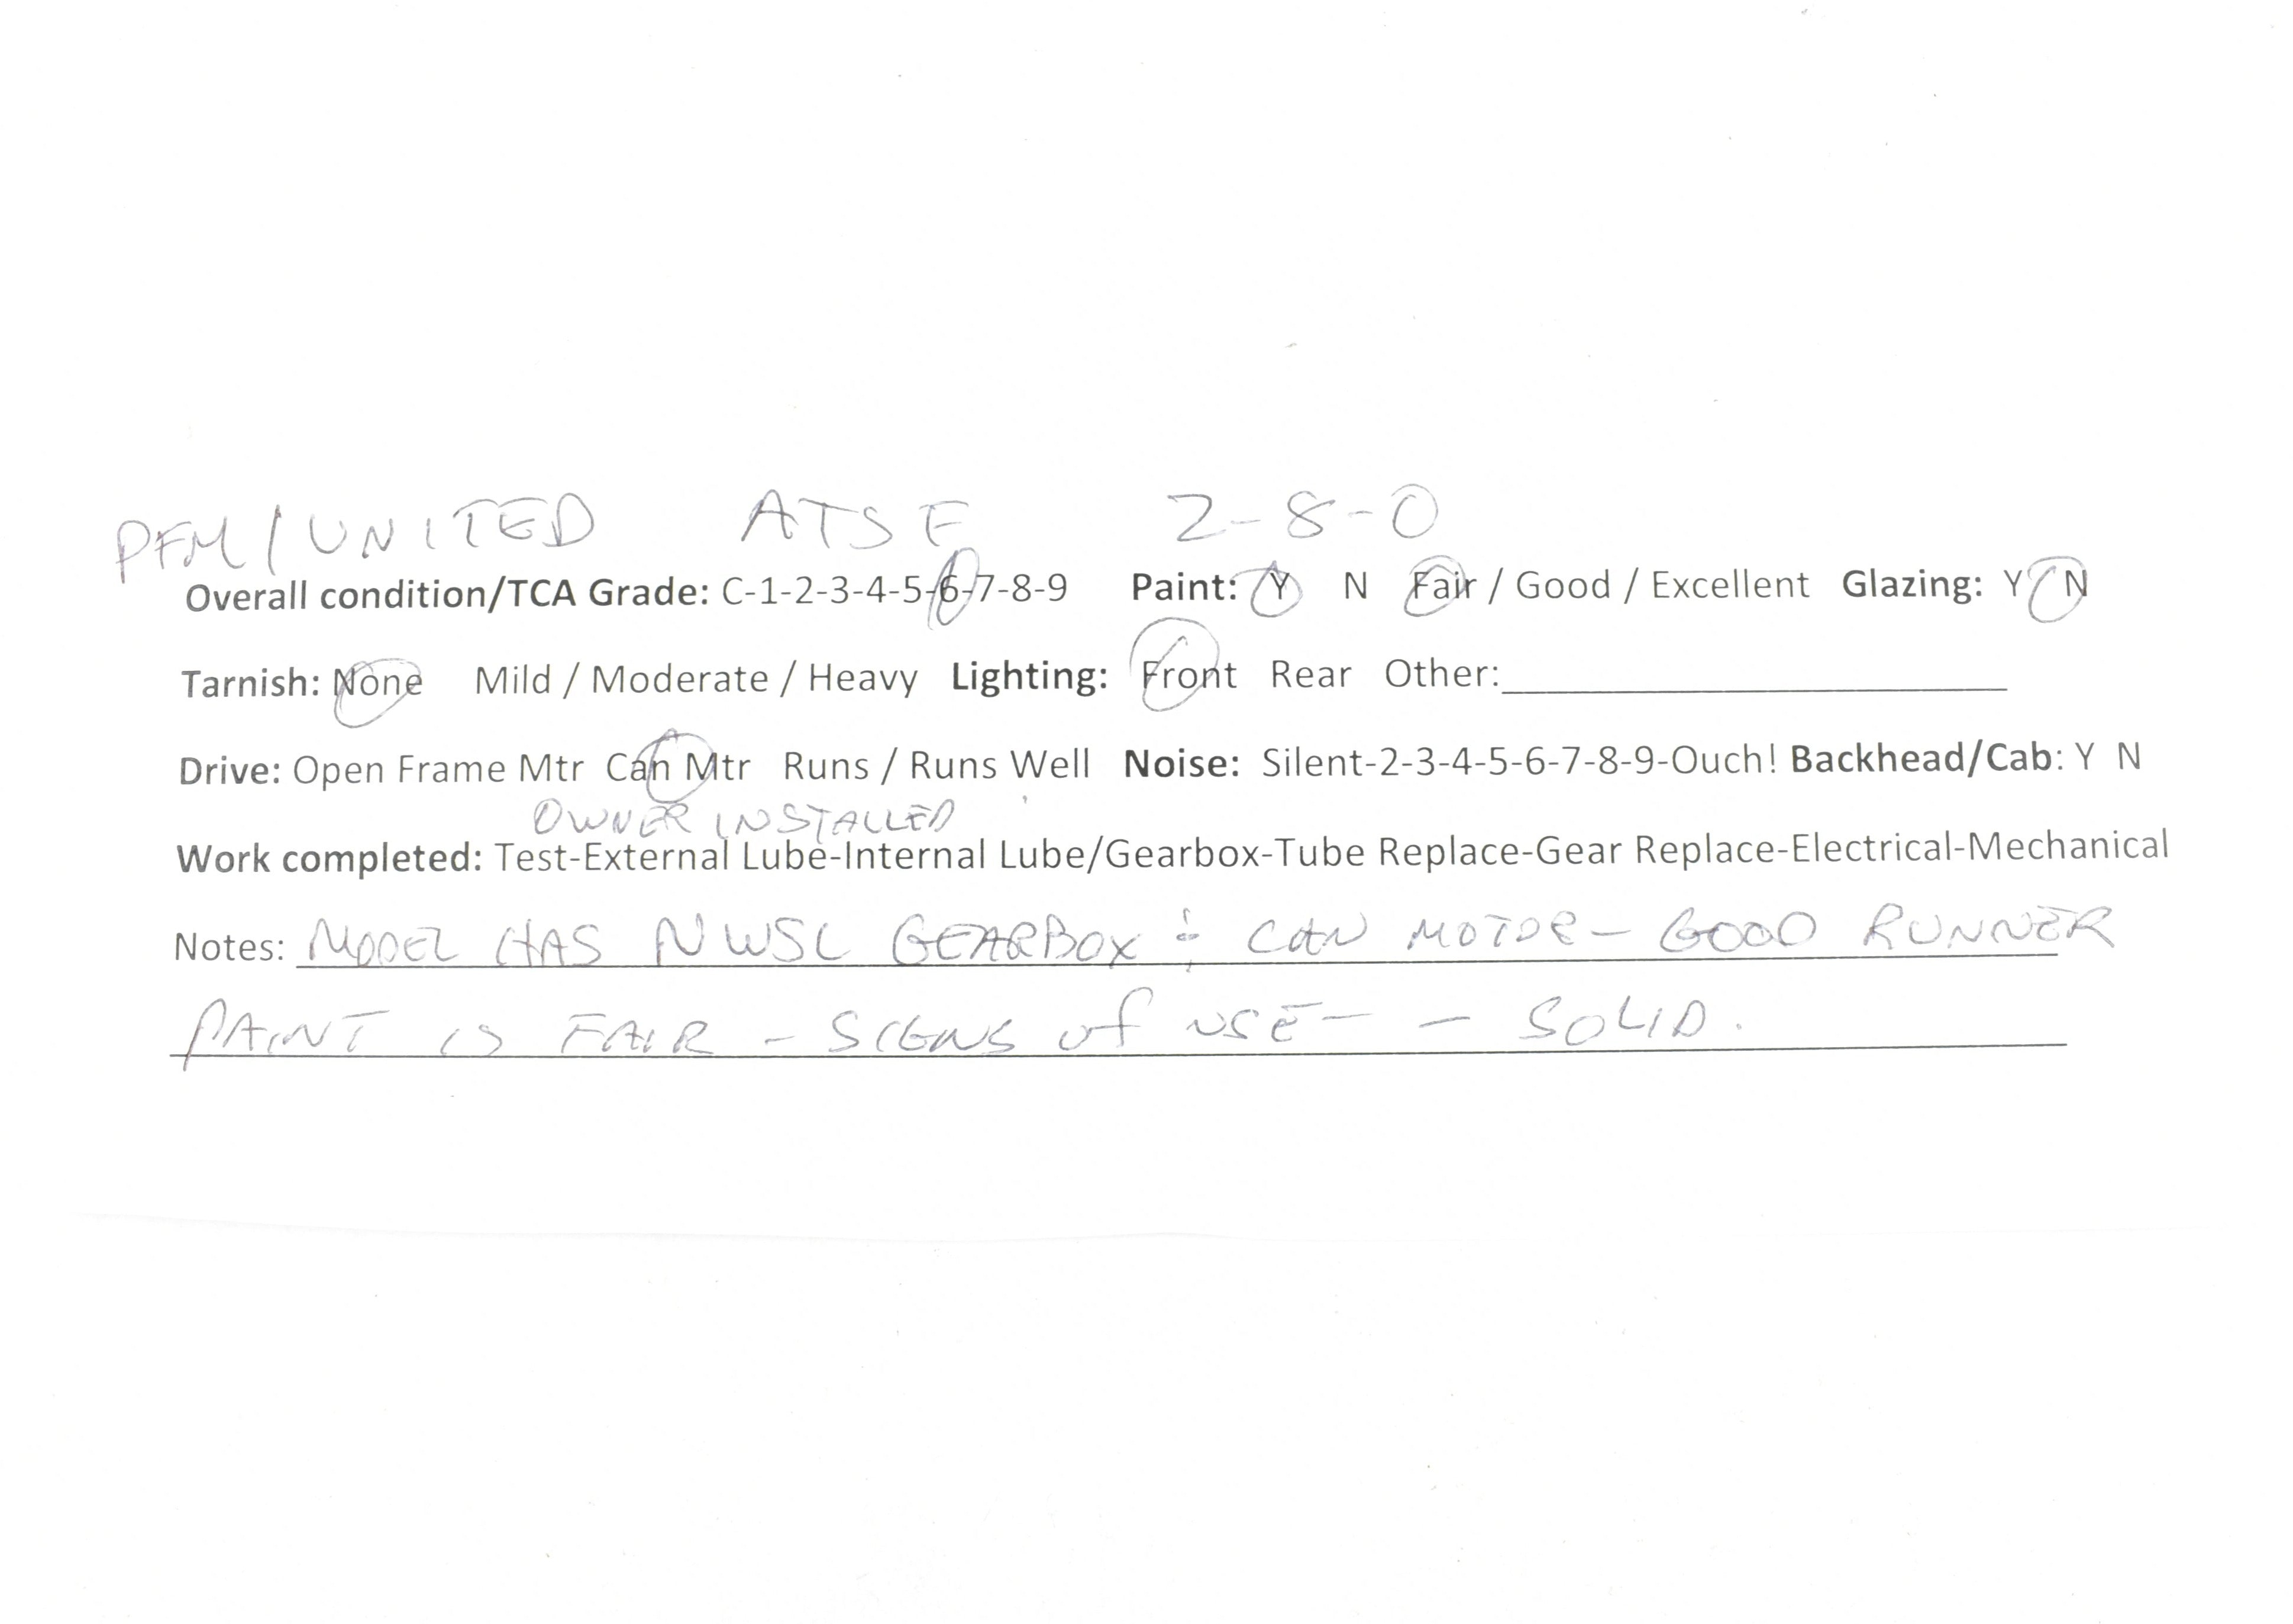 PFM/UNITED ATSF 2-8-0
Overall condition/TCA Grade: C-1-2-3-4-5-6-7-8-9 Paint: Y N Fair / Good / Excellent Glazing: Y N
Tarnish: None Mild / Moderate / Heavy Lighting: Front Rear Other:
Drive: Open Frame Mtr Can Mtr Runs / Runs Well Noise: Silent-2-3-4-5-6-7-8-9-Ouch! Backhead/Cab: Y N
OWNER INSTALLED
Work completed: Test-External Lube-Internal Lube/Gearbox-Tube Replace-Gear Replace-Electrical-Mechanical
Notes: MODEL HAS NWSL GEARBOX & CAN MOTOR - GOOD RUNNER
PAINT IS FAIR - SIGNS of USE - SOLID.